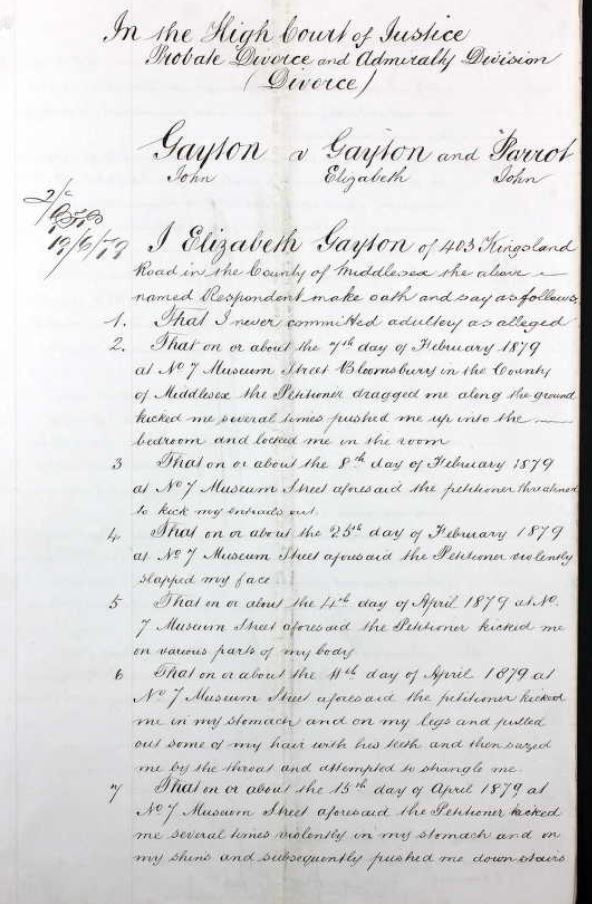 In the High Court of Justice
Probate Divorce and Admiralty Division
(Divorce)
Gayton v Gayton and Parrot
John Elizabeth John
I Elizabeth Gayton of 403 Kingsland
Road in the County of Middlesex the above
named Respondent make oath and say as follows.
1. That I never committed adultery as alleged
2. That on or about the 7th day of February 1879
at No 7 Museum Street Bloomsbury in the County
of Middlesex the Petitioner dragged me along the ground
kicked me several times pushed me up into the
bedroom and locked me in the room
3 That on or about the 8th day of February 1879
at No 7 Museum Street aforesaid the petitioner threatened
to kick my entrails out.
4 That on or about the 25th day of February 1879
at No 7 Museum Street aforesaid the Petitioner violently
slapped my face
5 That on or about the 4th day of April 1879 at No.
7 Museum Street aforesaid the Petitioner kicked me
on various parts of my body
6 That on or about the 11th day of April 1879 at
No 7 Museum Street aforesaid the petitioner kicked
me in my stomach and on my legs and pulled
out some of my hair with his teeth and then seized
me by the throat and attempted to strangle me.
7 That on or about the 15th day of April 1879 at
No 7 Museum Street aforesaid the Petitioner kicked
me several times violently in my stomach and on
my shins and subsequently pushed me down stairs